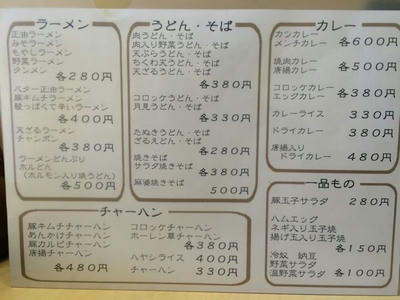 ラーメン
正油ラーメン
みそラーメン
もやしラーメン
野菜ラーメン
タンメン
各280円
バター正油ラーメン
豚キムチラーメン
酸っぱくて辛いラーメン
各400円
天ざるラーメン
チャンポン
各380円
ラーメンどんぶり
ホルどん
(ホルモン入り焼うどん)
各500円
うどん・そば
肉うどん・そば
肉入り野菜うどん・そば
天ぷらうどん・そば
ちくわ天うどん・そば
天ざるうどん・そば
各380円
コロッケうどん・そば
月見うどん・そば
各330円
たぬきうどん・そば
ざるえどん・そば
各280円
焼きそば
サラダ焼きそば
各380円
麻婆焼きそば
500円
カレー
カツカレー
メンチカレー
各600円
焼肉カレー
唐揚カレー
各510円
コロッケカレー
エッグカレー
各380円
カレーライス 330円
ドライカレー 380円
唐揚入り
ドライカレー 480円
チャーハン
豚キムチチャーハン
あんかけチャーハン
豚カルビチャーハン
唐揚チャーハン
各480円
コロッケチャーハン
ホーレン草チャーハン
各380円
ハヤシライス 400円
チャーハン 330円
一品もの
豚玉子サラダ 280円
ハムエッグ
ネギ入り玉子焼
揚げ玉入り玉子焼
各150円
冷奴 納豆
野菜サラダ
温野菜サラダ 各100円